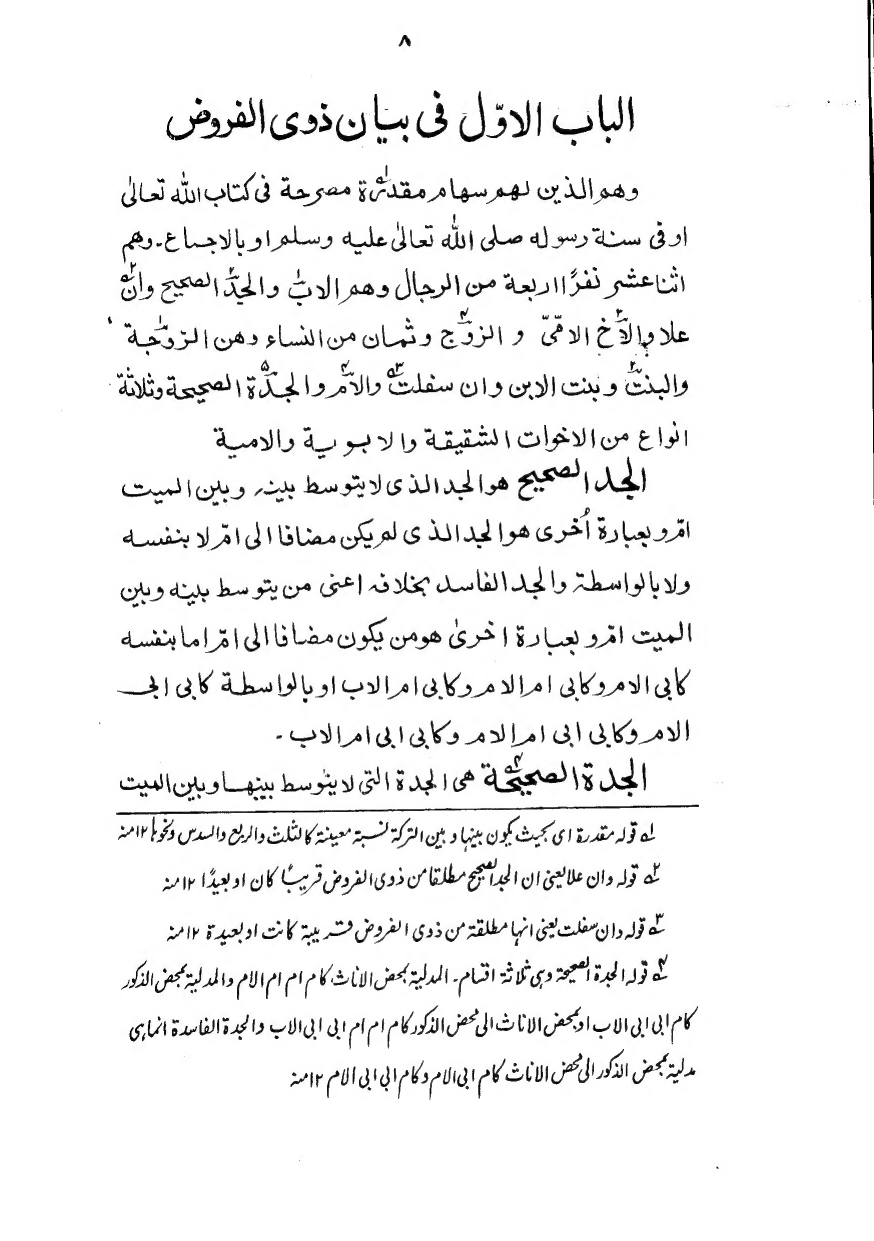 ٨
الباب الاوّل فی بیان ذوی الفروض
وهم الذین لهم سهام مقدرة۱ مصرحة فی کتاب الله تعالیٰ
او فی سنة رسوله صلی الله تعالیٰ علیه وسلم او بالاجماع۔ وهم
اثنا عشر نفرًا اربعة من الرجال وهم الاب۱ والجد۲ الصحیح وان۲
علا والاخ۳ الامّیّ و الزوج۴ وثمان من النساء وهن الزوجة۱
والبنت۲ وبنت الابن وان سفلت۳ والام۴ والجدة۵ الصحیحة وثلاثة
انواع من الاخوات الشقیقة والابویة والامیة
الجد الصحیح هو الجد الذی لا یتوسط بینه وبین المیت
امّ وبعبارة اُخری هو الجد الذی لم یکن مضافا الی امّ لا بنفسه
ولا بالواسطة والجد الفاسد بخلافه اعنی من یتوسط بینه وبین
المیت ام وبعبارة اخریٰ هو من یکون مضافا الی امّ اما بنفسه
کابی الام وکابی ام الام وکابی ام الاب او بالواسطة کابی ابی
الام وکابی ابی ام الام وکابی ابی ام الاب ۔
الجدة الصحیحة۴ هی الجدة التی لا یتوسط بینها وبین المیت
۱ قوله مقدرة ای بحیث یکون بینها وبین الترکة نسبة معینة کالثلث والربع والسدس ونحوها ۱۲ منه
۲ قوله وان علا یعنی ان الجد الصحیح مطلقا من ذوی الفروض قریبًا کان او بعیدًا ۱۲ منه
۳ قوله وان سفلت یعنی انها مطلقة من ذوی الفروض قریبة کانت او بعیدة ۱۲ منه
۴ قوله الجدة الصحیحة وہی ثلاثة اقسام۔ المدلیة بمحض الاناث کام ام ام الام والمدلیة بمحض الذکور
کام ابی ابی الاب او بمحض الاناث الی محض الذکور کام ام ام ابی ابی الاب والجدة الفاسدة انما ہی
مدلیة بمحض الذکور الی محض الاناث کام ابی الام وکام ابی ابی الام ۱۲ منه